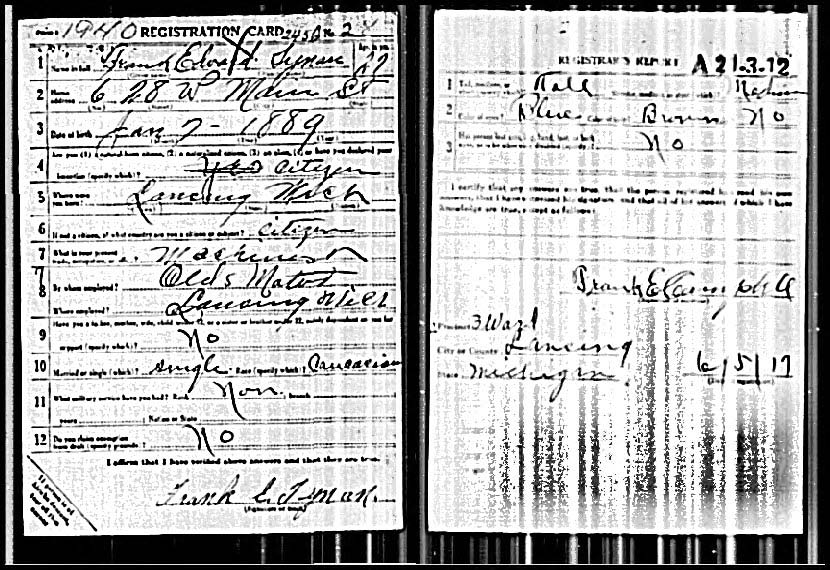 1940 REGISTRATION CARD No. 2
1 Name in full Frank Edward Tyman Age in yrs. 27
2 Home address 628 W Main St
3 Date of birth Jan 7 - 1889
4 Are you (1) a natural born citizen, (2) a naturalized citizen, (3) an alien, (4) or have you declared your
intention (specify which)? Yes Citizen
5 Where were you born? Lancing Mich
6 If not a citizen, of what country are you a citizen or subject? Citizen
7 What is your present trade, occupation, or office? Machinist
8 By whom employed? Olds Motor
Where employed? Lansing Mich
9 Have you a father, mother, wife, child under 12, or a sister or brother under 12, solely dependent on you for
support (specify which)? No
10 Married or single (which)? Single Race (specify which)? Caucasian
11 What military service have you had? Rank Non branch
years Nation or State
12 Do you claim exemption from draft (specify grounds)? No
I affirm that I have verified above answers and that they are true.
Frank E. Tyman
(Signature or mark)
REGISTRAR'S REPORT A 21-3-12
1 Tall, medium, or Tall Slender, medium, or stout (which)? Medium
2 Color of eyes? Blue Color of hair? Brown No
3 Has person lost arm, leg, hand, foot, or both
eyes, or is he otherwise disabled (specify)? No
I certify that my answers are true, that the person registered has read his own
answers, that I have witnessed his signature, and that all of his answers of which I have
knowledge are true, except as follows:
Frank E Camphell
Precinct 3 Ward
City or County Lancing
State Michigan 6/5/17
(Date of registration)